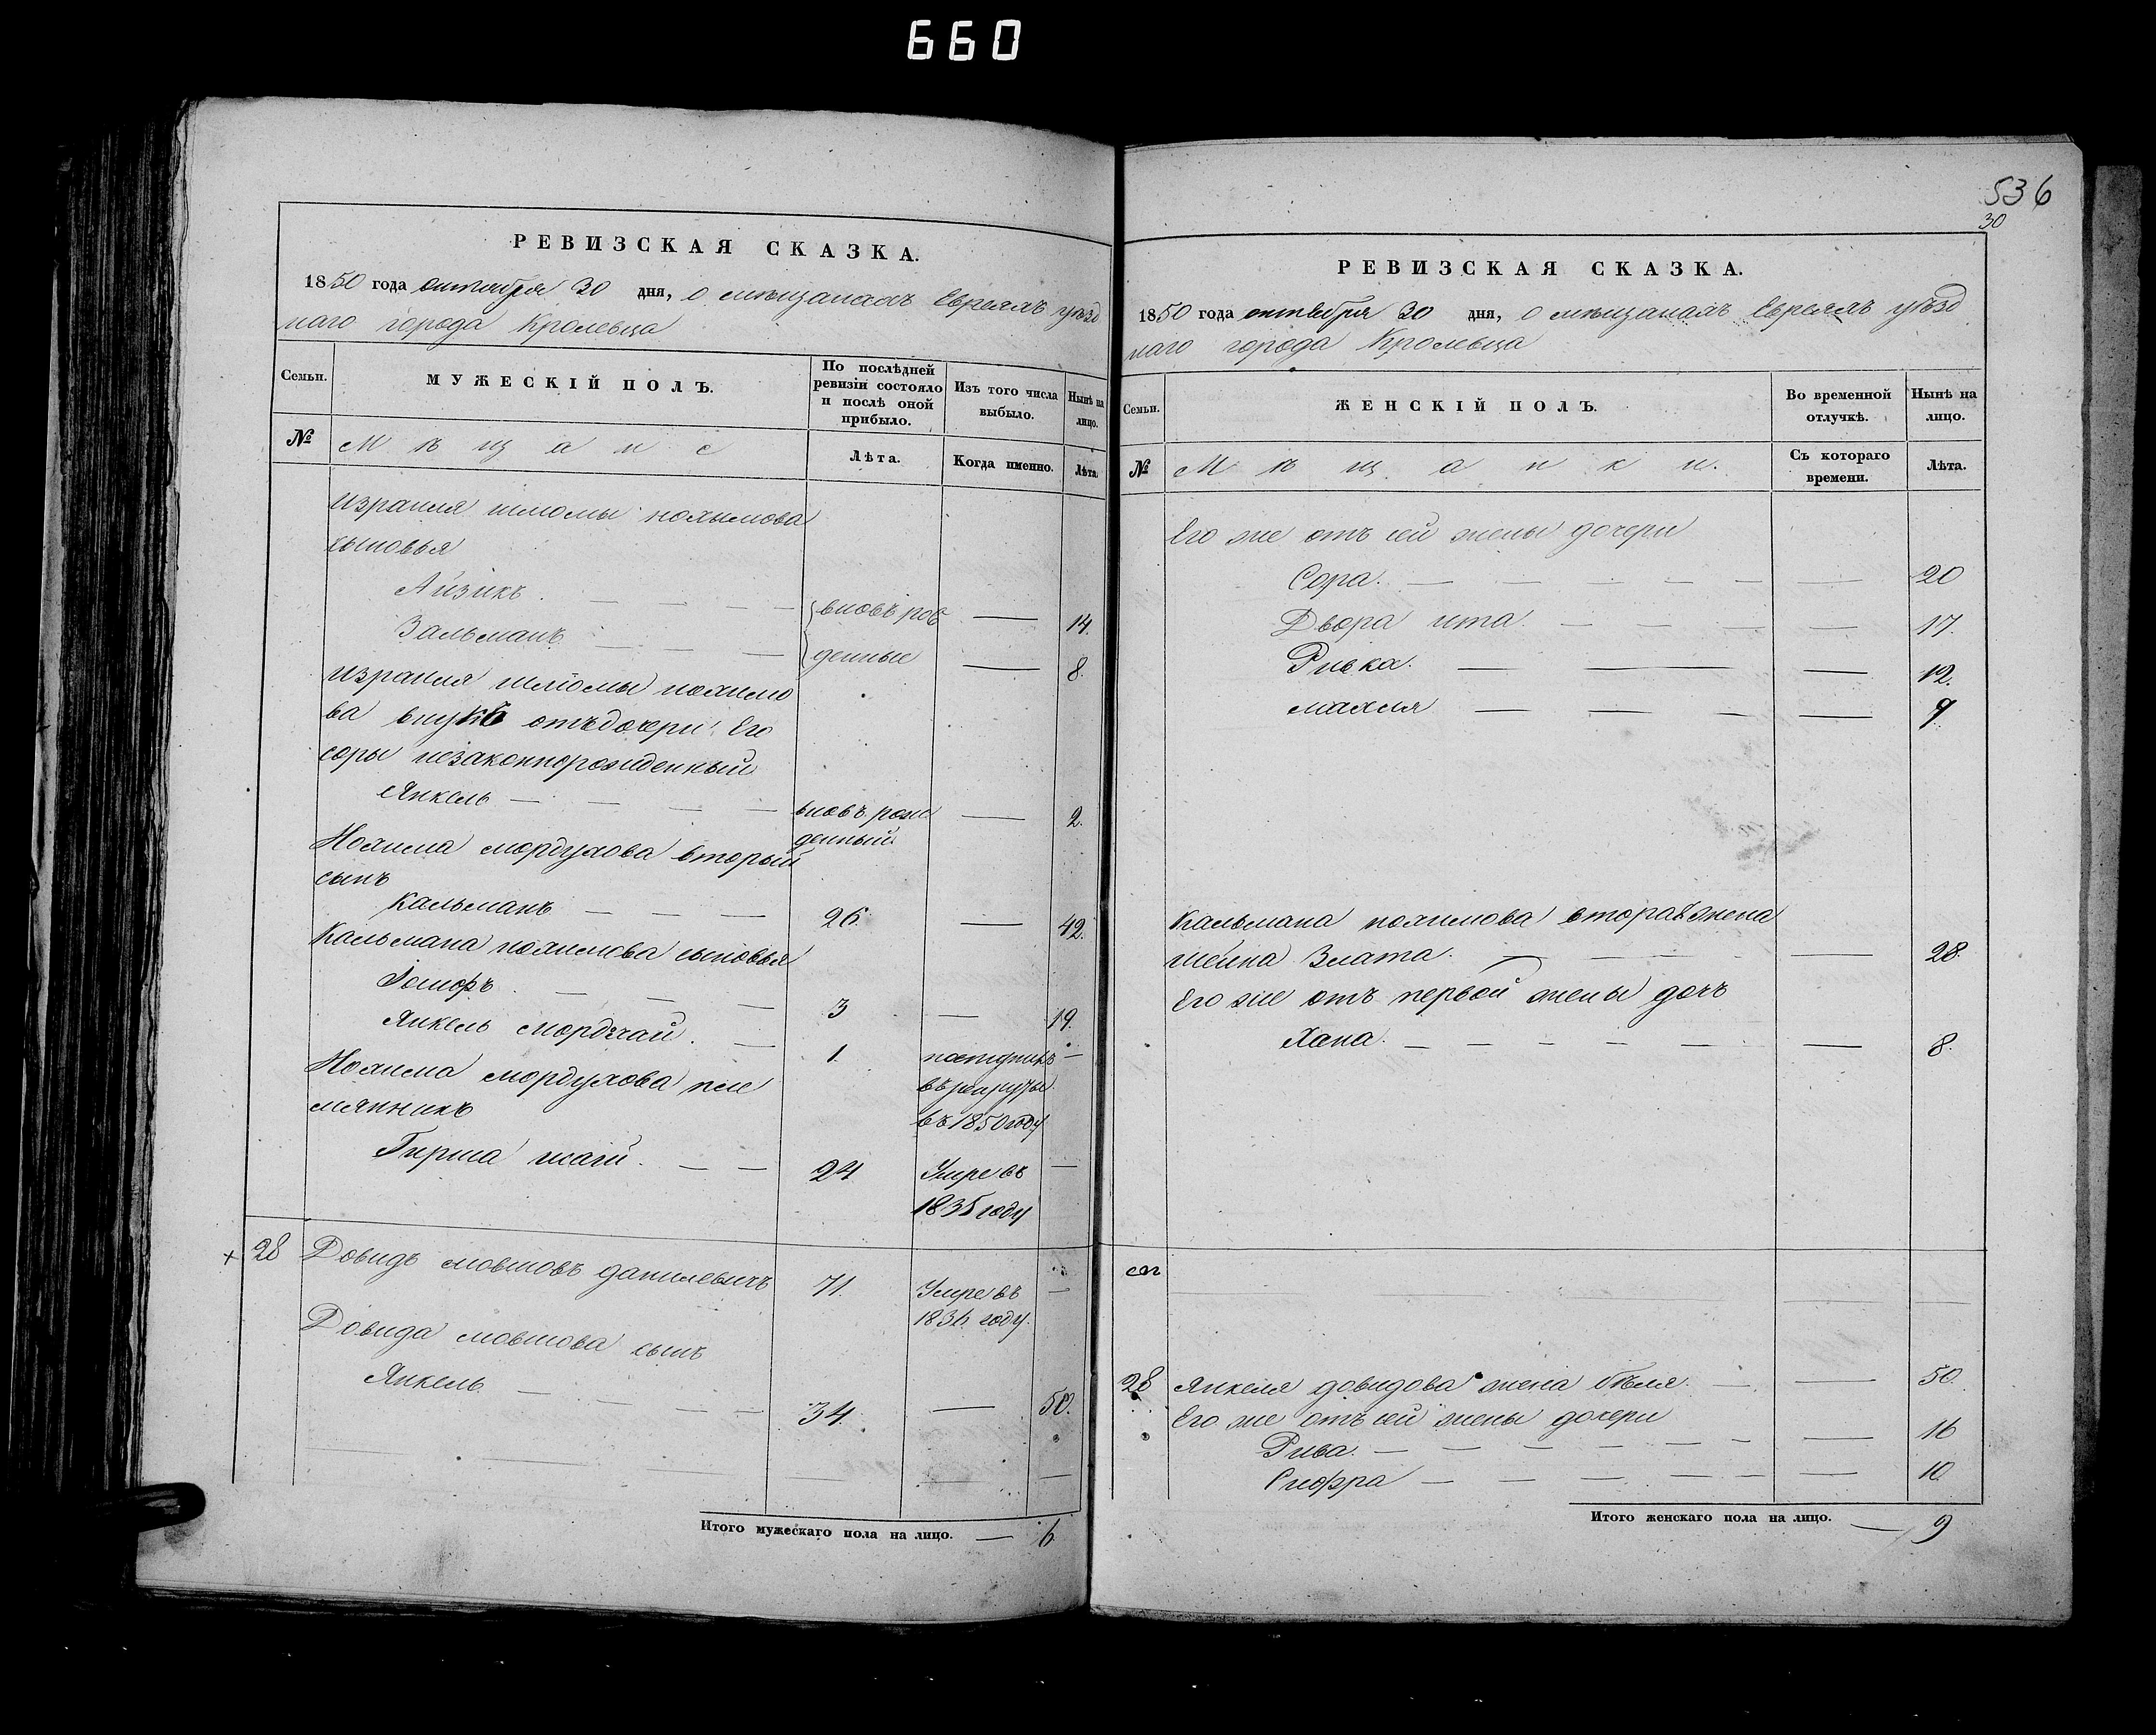 660
РЕВИЗСКАЯ СКАЗКА.
1850 года октября 30 дня, о мѣщанахъ Евреяхъ уѣзд
наго города Кролевца
Семьи.
МУЖЕСКІЙ ПОЛЪ.
По послѣдней ревизіи состояло и послѣ оной прибыло.
Изъ того числа выбыло.
Нынѣ на лицо.
№
Мѣщане
Лѣта.
Когда именно.
Лѣта.
Израиля шломы нохымова
сыновья
Айзикъ вновь рож 14.
Зальманъ денные 8.
Израиля шлiомы нохимо
ва внукъ отъ дочери Его
соры незаконнорожденный
Янкель вновь рож 2.
денный
Нохима мордухова вторый
сынъ
Кальманъ 26. 42.
Кальмана нохимова сыновья
Iосифъ 3 19.
Янкель мордхай 1.
въ рекруты
въ 1850 году
Нохима мордухова пле
мянникъ
Гирша 24 Умре въ
1835 году
28 Довидъ мовшовъ данилевичъ 71. Умре въ
1836 году.
Довида мовшова сынъ
Янкель 34. 50.
Итого мужескаго пола на лицо. 6
536
30
РЕВИЗСКАЯ СКАЗКА.
1850 года октября 30 дня, о мѣщанахъ Евреяхъ уѣзд
наго города Кролевца
Семьи.
ЖЕНСКІЙ ПОЛЪ.
Во временной отлучкѣ.
Нынѣ на лицо.
№
Мѣщанки.
Съ котораго времени.
Лѣта.
Его же отъ сей жены дочери
Сора. 20
Двора ита. 17.
Ривка. 12.
махля 9
Кальмана нохимова вторая жена
шейна Злата. 28.
Его же отъ первой жены дочь
Хана. 8.
28 Янкеля довидова жена бѣля. 50.
Его же отъ сей жены дочери
Рива. 16
Сифра 10.
Итого женскаго пола на лицо. 9